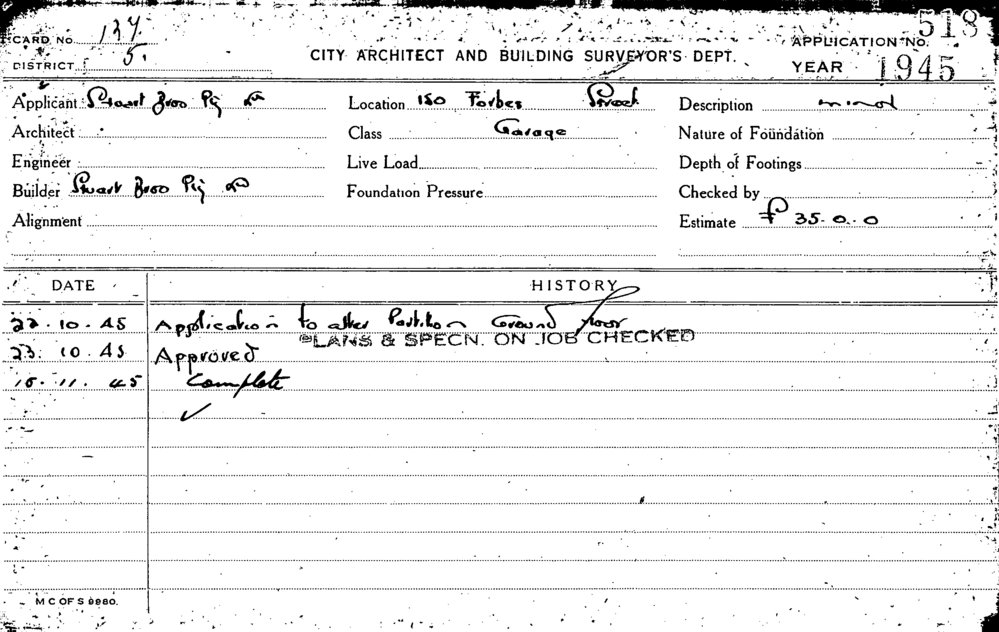 CARD NO. 137 CITY ARCHITECT AND BUILDING SURVEYOR'S DEPT. APPLICATION NO. 518
DISTRICT 5. YEAR 1945
Applicant Stuart Bros Pty Ld Location 150 Forbes Street Description minor
Architect Class Garage Nature of Foundation
Engineer Live Load Depth of Footings
Builder Stuart Bros Pty Ld Foundation Pressure Checked by
Alignment Estimate £ 35.0.0
DATE HISTORY
22.10.45 Application to alter Partition Ground floor
PLANS & SPECN. ON JOB CHECKED
23.10.45 Approved
.11.45 Complete
M C OF S 9980.